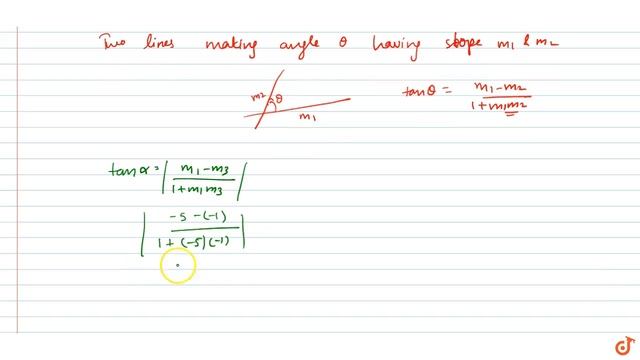 Two lines making angle θ having slope m1 & m2
m2 θ
m1
tanθ = m1-m2
1+m1m2
tanα = | m1-m3
1+m1m3 |
| -5-(-1)
1+(-5)(-1) |